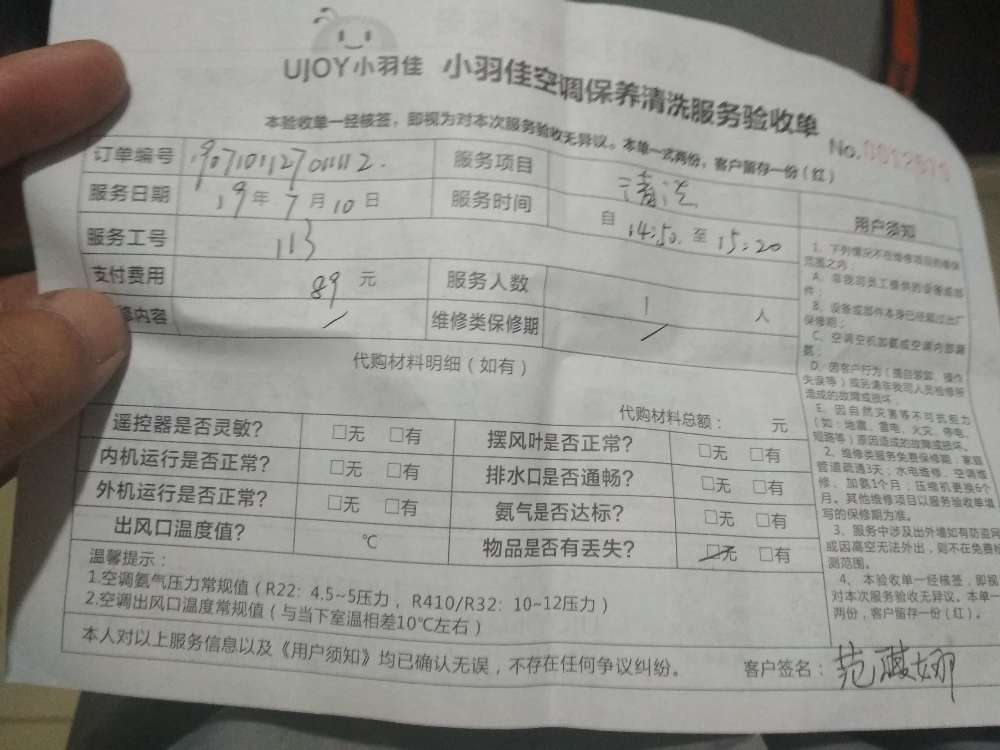 UJOY小羽佳 小羽佳空调保养清洗服务验收单
本验收单一经核签，即视为对本次服务验收无异议。本单一式两份，客户留存一份（红）
No.
订单编号 服务项目 清洗
服务日期 19年7月10日 服务时间 自14:50至15:20
服务工号 113
支付费用 89元 服务人数 1人
内容 / 维修类保修期 /
代购材料明细（如有）
代购材料总额： 元
遥控器是否灵敏？ □无 □有 摆风叶是否正常？ □无 □有
内机运行是否正常？ □无 □有 排水口是否通畅？ □无 □有
外机运行是否正常？ □无 □有 氨气是否达标？ □无 □有
出风口温度值？ ℃ 物品是否有丢失？ □无 □有
温馨提示：
1.空调氨气压力常规值（R22：4.5~5压力，R410/R32：10~12压力）
2.空调出风口温度常规值（与当下室温相差10℃左右）
本人对以上服务信息以及《用户须知》均已确认无误，不存在任何争议纠纷。
客户签名：范
用户须知
1、下列情况不在维修项目的维保
范围之内：
A、非我司员工提供的设备或部
件；
B、设备或部件本身已经超过出厂
保修期；
C、空调空机加氨或空调内部漏
氨；
D、因客户行为（擅自装卸、操作
失误等）或另请非我司人员检修所
造成的故障或损坏；
E、因自然灾害等不可抗拒力
（如：地震、雷电、火灾、停电、
短路等）原因造成的故障或损坏。
2、维修类服务免费保修期：家庭
管道疏通3天；水电维修、空调维
修、加氨1个月；压缩机更换6个
月。其他维修项目以服务验收单填
写的保修期为准。
3、服务中涉及出外墙如有防盗网
或因高空无法外出，则不在免费检
测范围。
4、本验收单一经核签，即视
对本次服务验收无异议。本单一
两份，客户留存一份（红）。